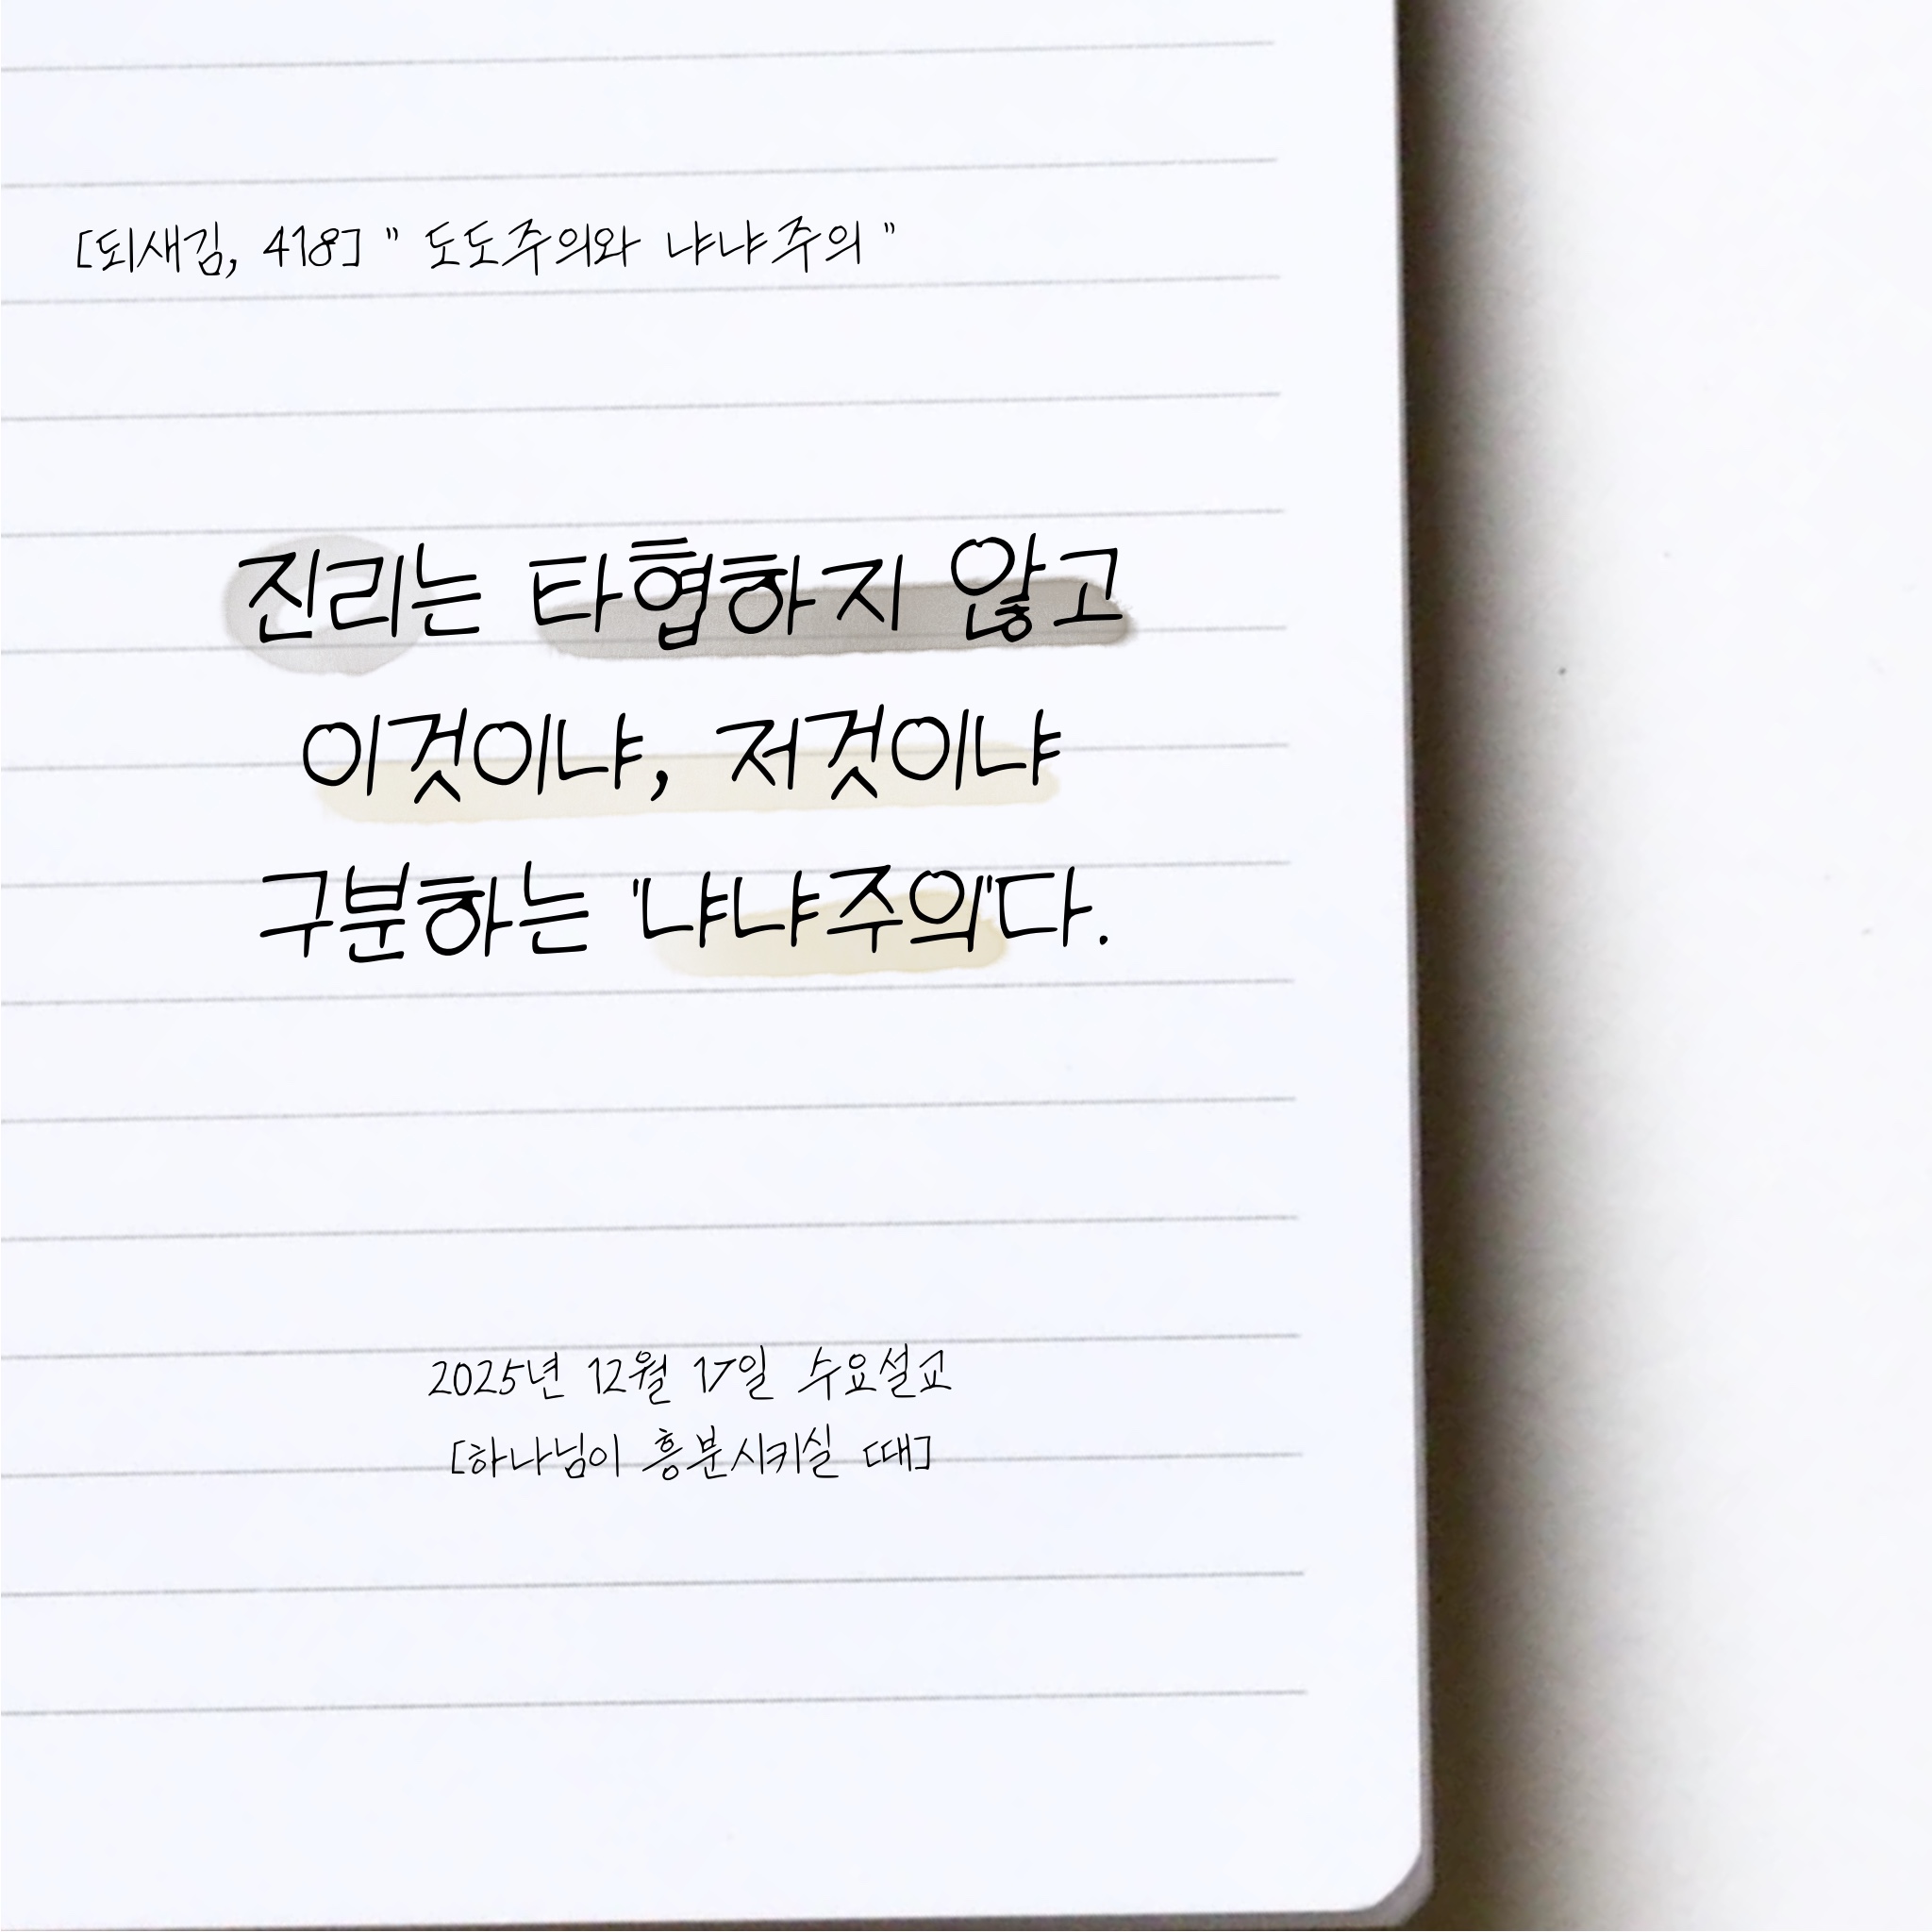 [되새김, 418] " 도도주의와 냐냐주의 "
진리는 타협하지 않고
이것이냐, 저것이냐
구분하는 '냐냐주의'다.
2025년 12월 17일 수요설교
[하나님이 흥분시키실 때]